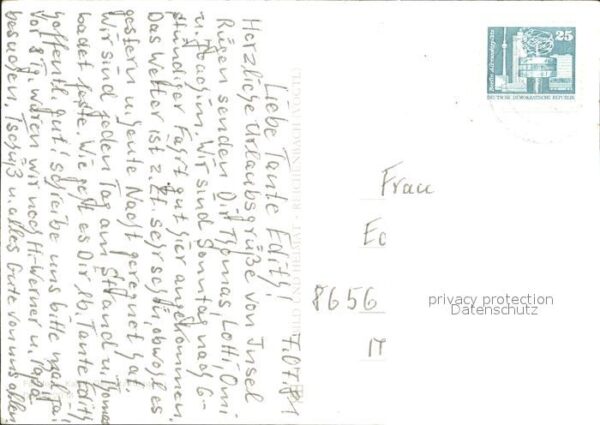 7.07.81
Liebe Tante Edith!
Herzliche Urlaubsgrüße von Insel
Rügen senden Dir Thomas, Lotti, Omi
u. Joachim. Wir sind Sonntag nach 6-
stündiger Fahrt gut hier angekommen.
Das Wetter ist z. Zt. sehr schön, obwohl es
gestern u. heute Nacht geregnet hat.
Wir sind jeden Tag am Strand u. Thomas
badet feste. Wie geht es Dir lb. Tante Edith
hoffentl. gut! Schreibe uns bitte mal
Vor 8 Tg. waren wir noch Hi-Werner u.
besuchen, Tschüß u. alles Gute von uns allen
BILD UND HEIMAT REICHENBACH
Berlin, Alexanderplatz
25
DEUTSCHE DEMOKRATISCHE REPUBLIK
Frau
Ed
8656
privacy protection
Datenschutz